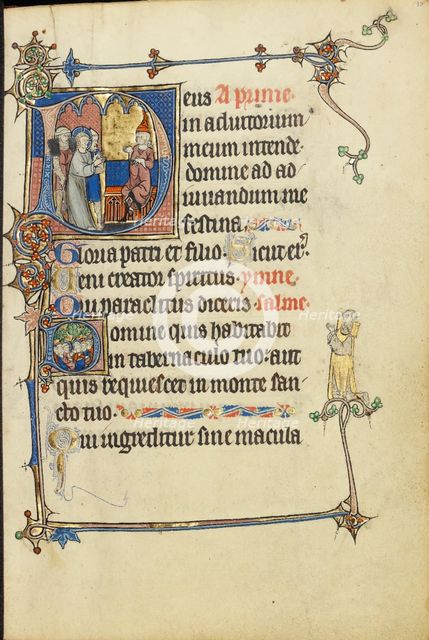 Deus A prime.
in adiutorium
meum intende.
domine ad ad
iuuandum me
festina.
Gloria patri et filio. Sicut er̃.
Ueni creator spiritus. ymne
Qui paraclitus diceris. salme
Domine quis habitabit
in tabernaculo tuo: aut
quis requiescet in monte san
cto tuo.
Qui ingreditur sine macula
Heritage
Heritage
Heritage
Heritage
Heritage
Heritage